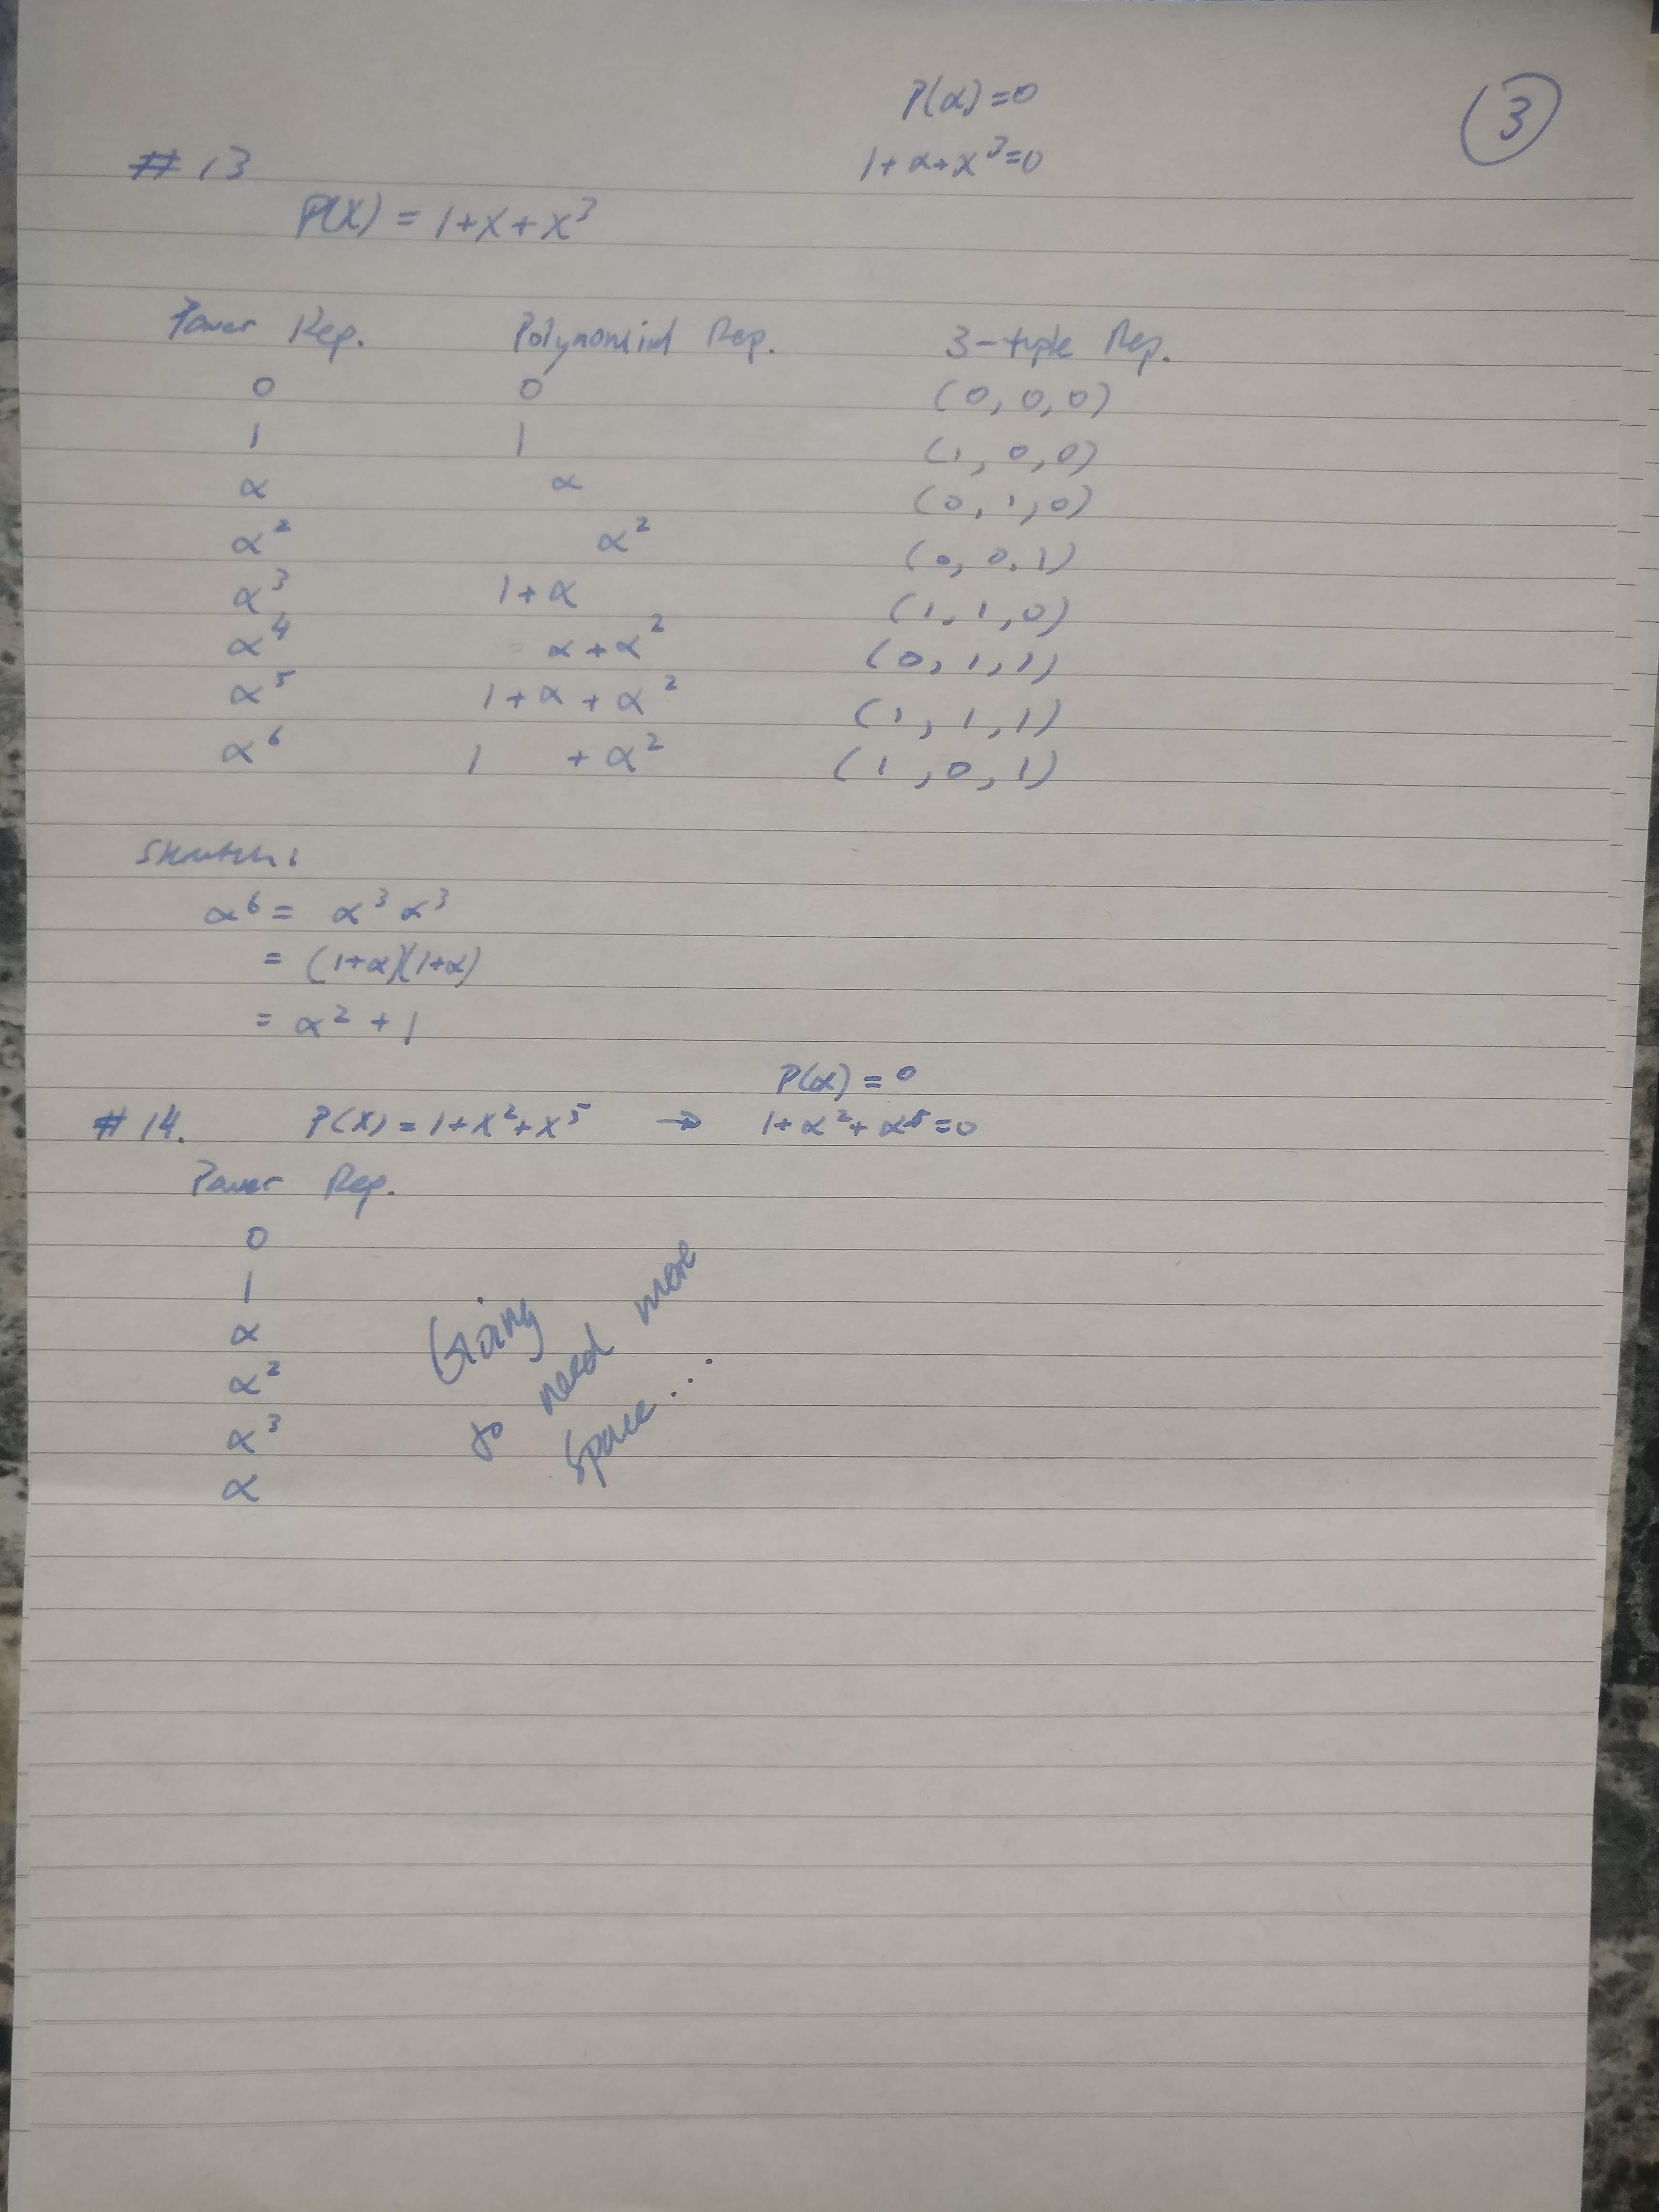 P(α)=0
3
1+α+x³=0
#13
P(X) = 1+X+X³
Power Rep. Polynomial Rep. 3-tuple Rep.
0 0 (0,0,0)
1 1 (1,0,0)
α α (0,1,0)
α² α² (0,0,1)
α³ 1+α (1,1,0)
α⁴ α+α² (0,1,1)
α⁵ 1+α+α² (1,1,1)
α⁶ 1 +α² (1,0,1)
α⁶ = α³ α³
= (1+α)(1+α)
= α² + 1
P(α) = 0
#14. P(X) = 1+X²+X⁵ → 1+α²+α⁵=0
Power Rep.
0
1
α
α²
α³
α
Going
to need more
space...